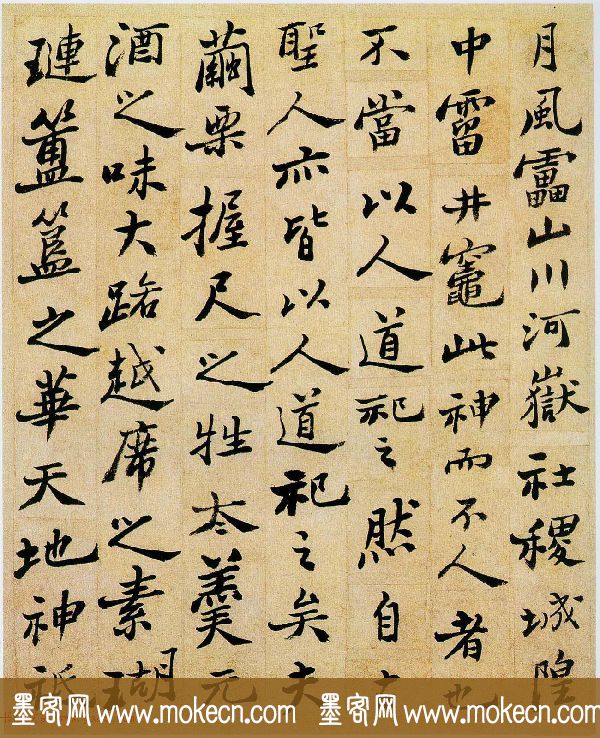 月風靁山川河嶽社稷城隍
中霤井竈此神而不人者也
不當以人道祀之然自
聖人亦皆以人道祀之矣夫
繭栗握尺之牲太羹元
酒之味大路越席之素瑚
璉簠簋之華天地神祇
墨客网 www.mokecn.com 墨客网 www.mokecn.com